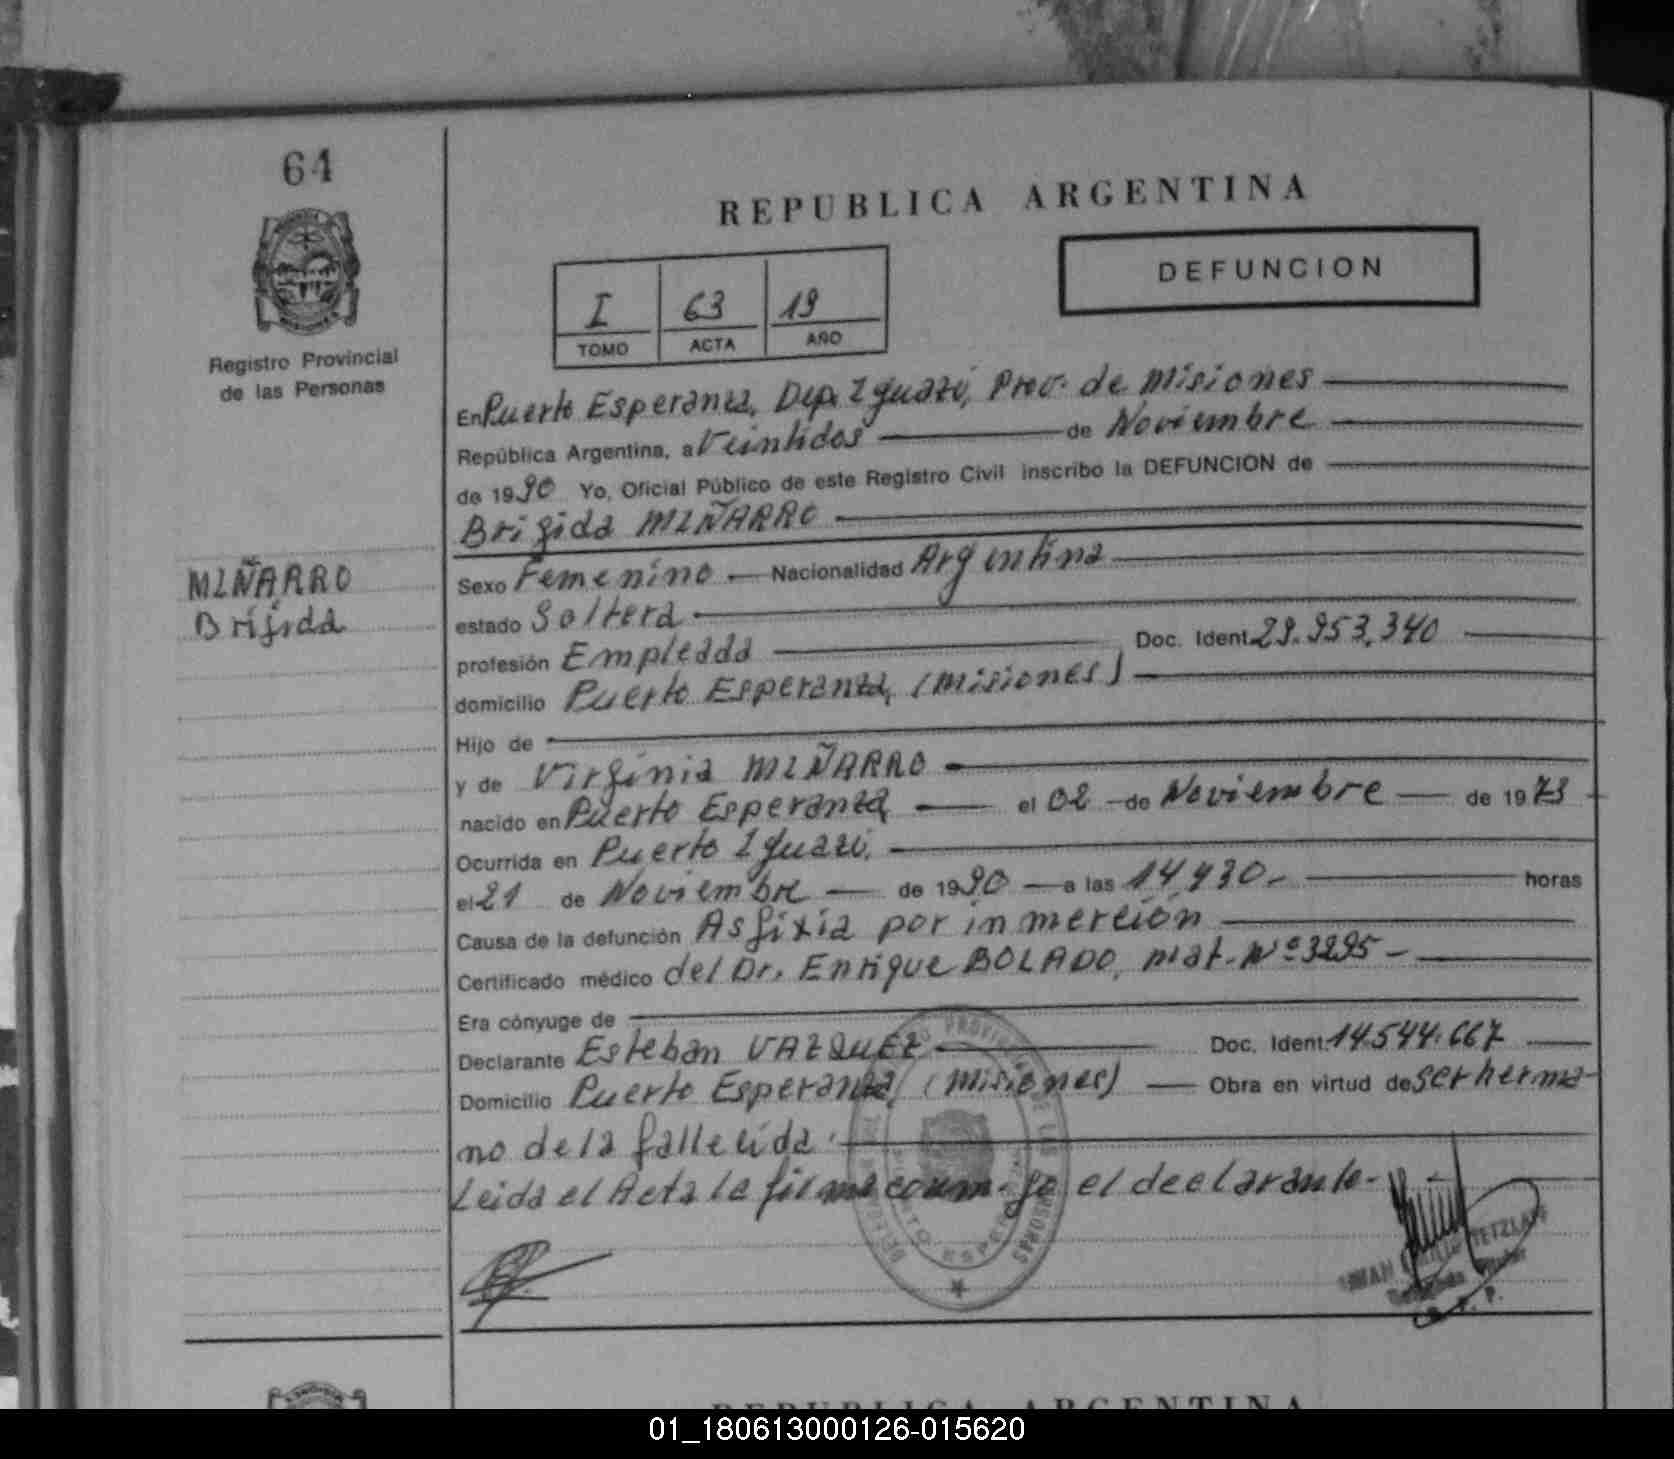 64
REPUBLICA ARGENTINA
DEFUNCION
I 63 19
TOMO ACTA AÑO
Registro Provincial
de las Personas
En Puerto Esperanza, Dep. Iguazú, Prov. de Misiones
República Argentina, a Veintidos de Noviembre
de 1990 Yo, Oficial Público de este Registro Civil inscribo la DEFUNCION de
Brigida MIÑARRO
MIÑARRO
Brigida
Sexo Femenino Nacionalidad Argentina
estado Soltera
profesión Empleada Doc. Ident. 29.953.340
domicilio Puerto Esperanza, (Misiones)
Hijo de
y de Virginia MIÑARRO
nacido en Puerto Esperanza el 02 de Noviembre de 1973
Ocurrida en Puerto Iguazú.
el 21 de Noviembre de 1990 a las 14,y30.- horas
Causa de la defunción Asfixia por inmerción
Certificado médico del Dr. Enrique BOLADO, mat. Nº 3295-
Era cónyuge de
Declarante Esteban VAZQUEZ Doc. Ident. 14.544.667
Domicilio Puerto Esperanza, (Misiones) Obra en virtud de ser herma-
no de la fallecida.
Leida el Acta la firma el declarante-
TETZLAFF
REPUBLICA ARGENTINA
01_180613000126-015620